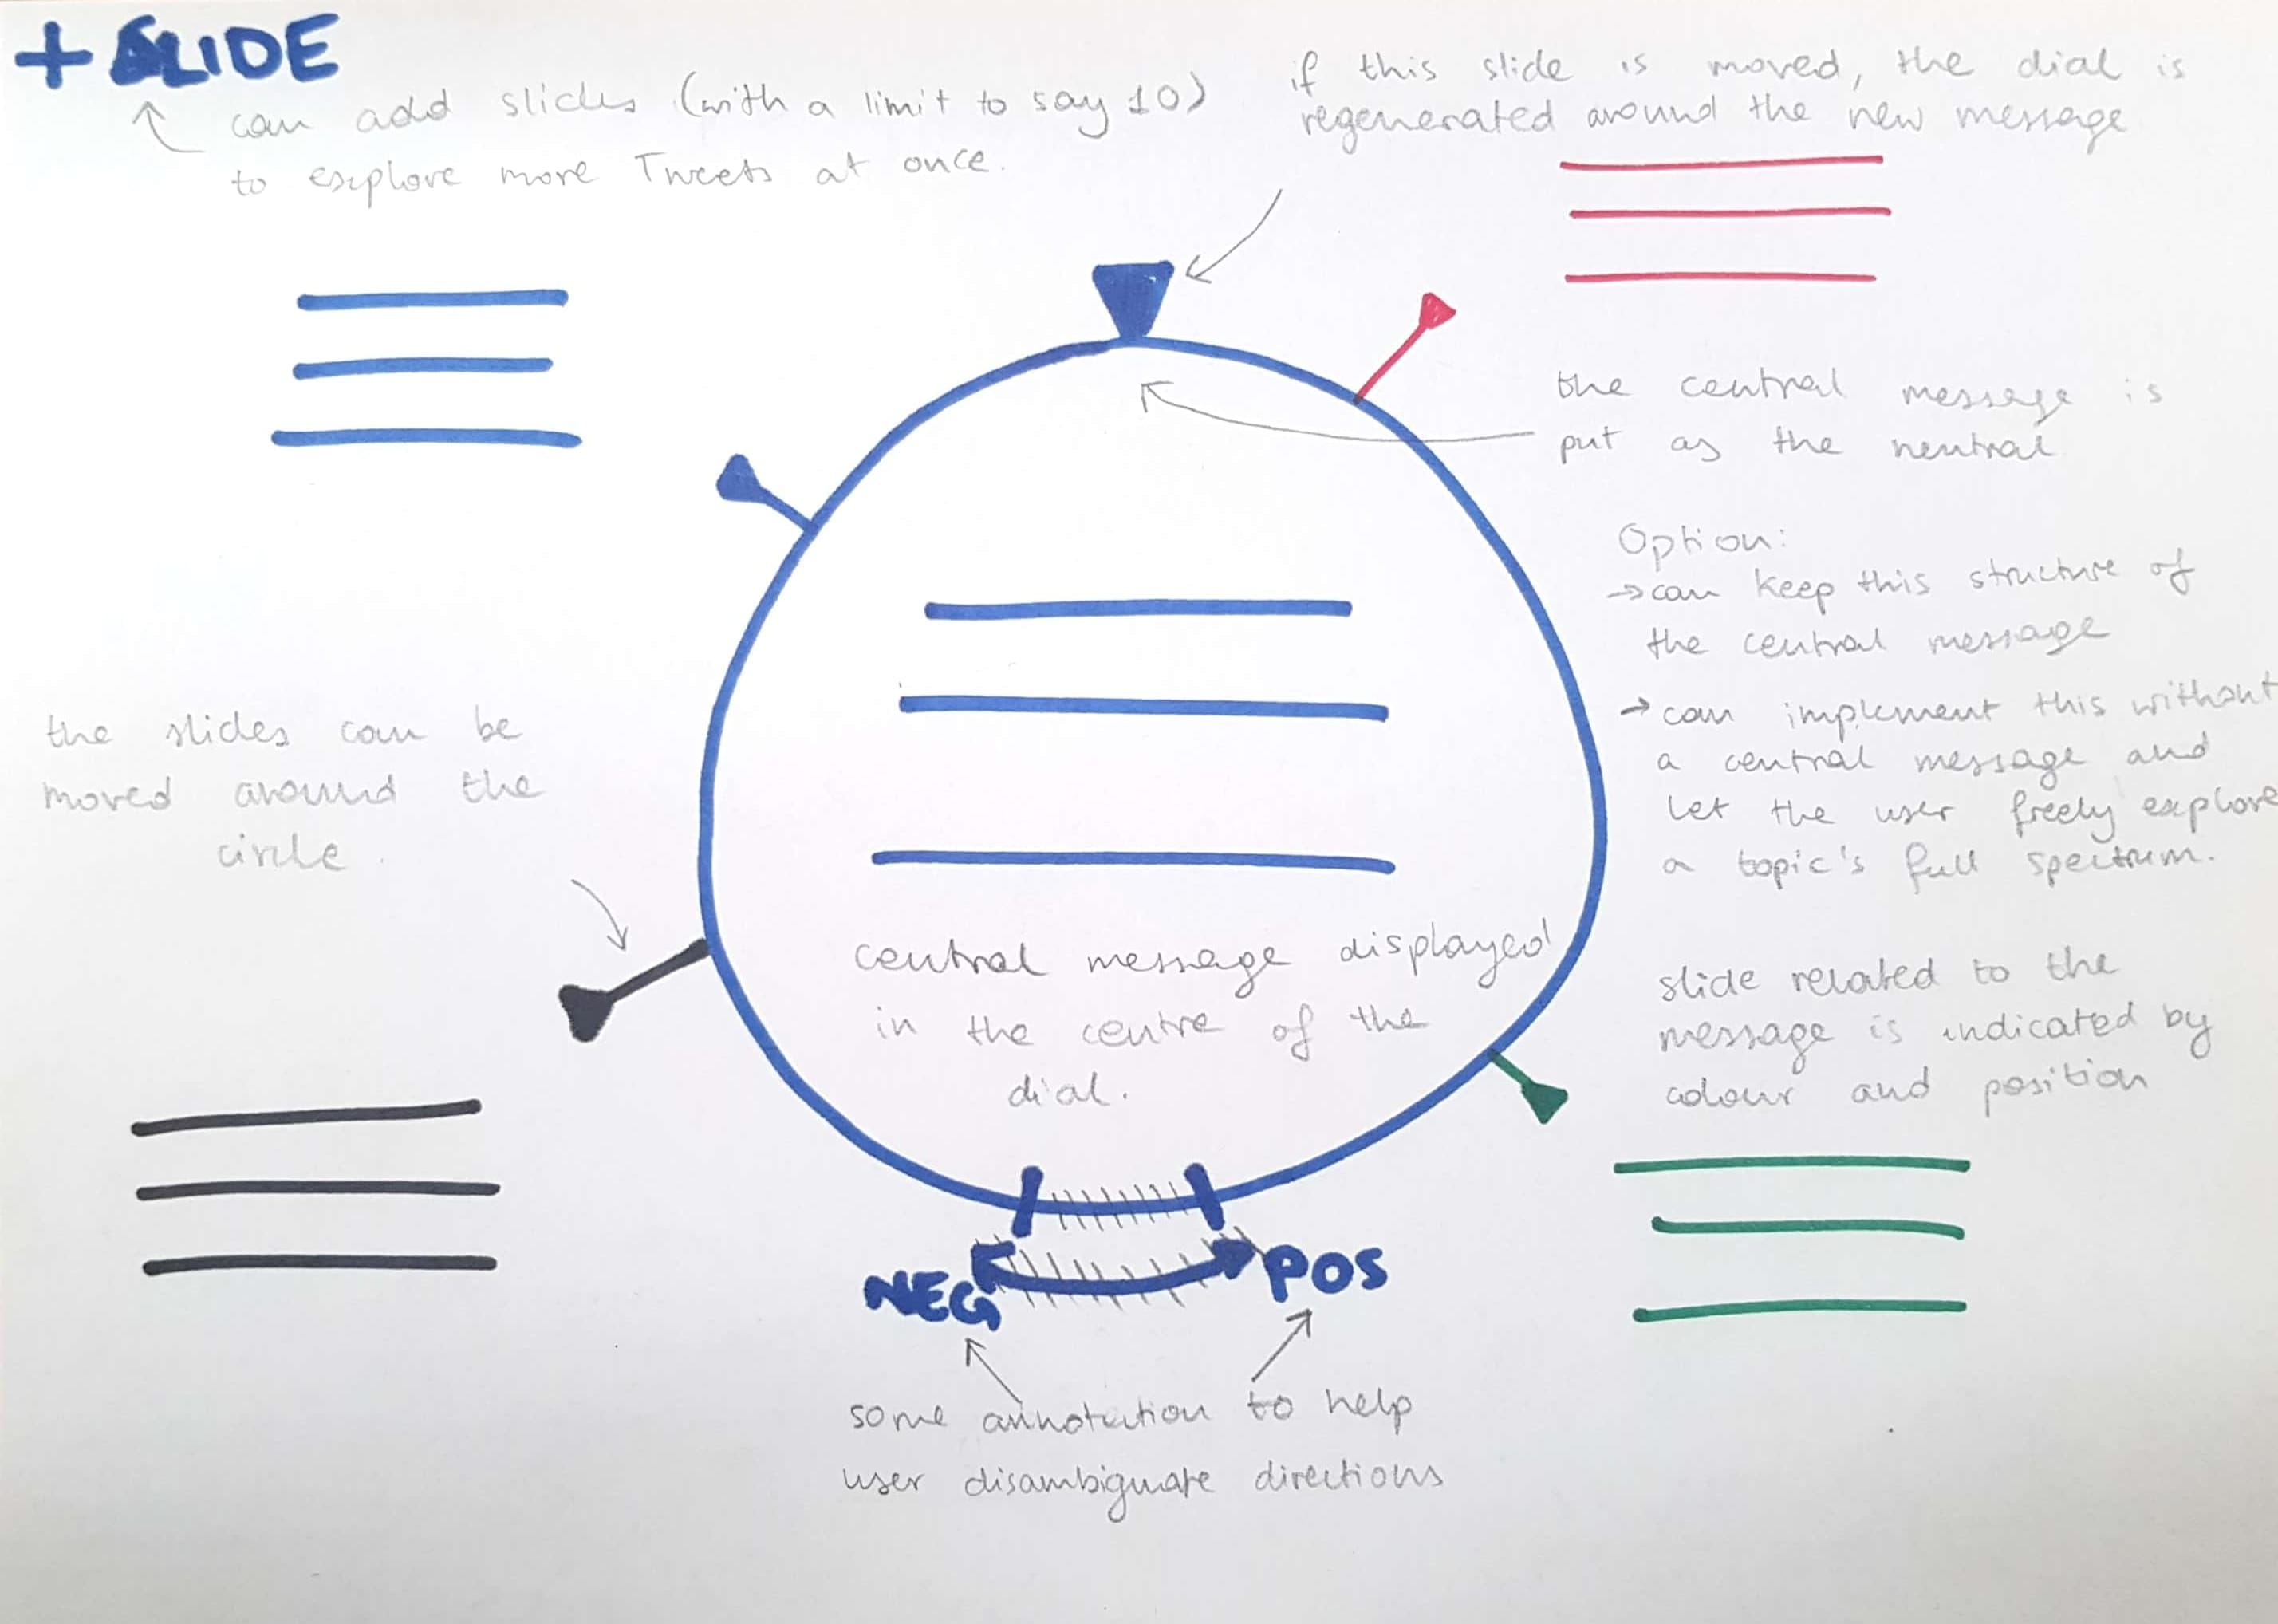 + SLIDE
can add slides (with a limit to say 10)
to explore more Tweets at once.
if this slide is moved, the dial is
regenerated around the new message
the central message is
put as the neutral
Option:
→ can keep this structure of
the central message
→ can implement this without
a central message and
let the user freely explore
a topic's full spectrum.
the slides can be
moved around the
circle.
central message displayed
in the centre of the
dial.
slide related to the
message is indicated by
colour and position
NEG
POS
some annotation to help
user disambiguate directions